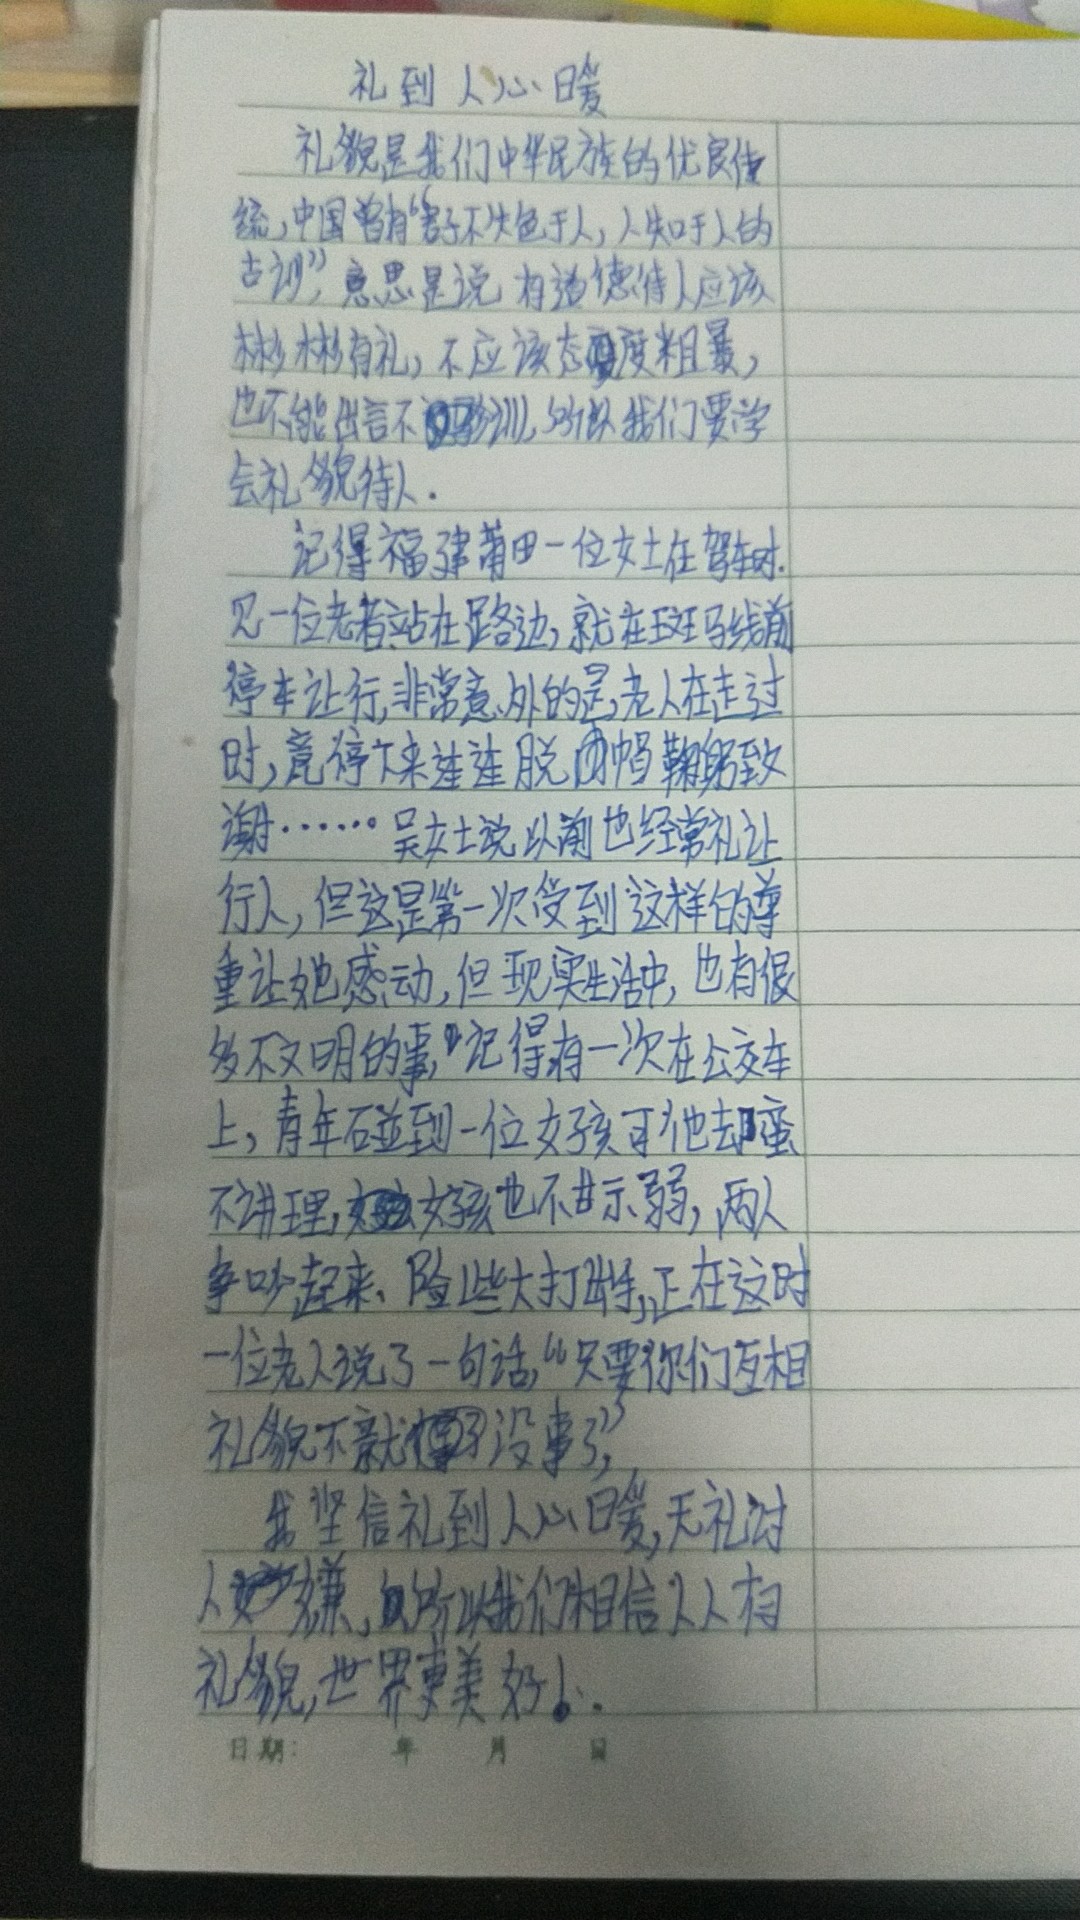 礼到人心暖
礼貌是我们中华民族的优良传
统,中国曾有“君子不失色于人,人失口于人的
古训”,意思是说有道德待人应该
彬彬有礼,不应该态度粗暴,
也不能出言不逊,所以我们要学
会礼貌待人.
记得福建莆田一位女士在驾车时.
见一位老者站在路边,就在斑马线前
停车让行,非常意外的是,老人在走过
时,竟停下来连连脱帽鞠躬致
谢……吴女士说以前也经常礼让
行人,但这是第一次受到这样的尊
重让她感动,但现实生活中,也有很
多不文明的事,记得有一次在公交车
上,青年碰到一位女孩可他却蛮
不讲理,女孩也不甘示弱,两人
争吵起来、险些大打出手,正在这时
一位老人说了一句话,“只要你们互相
礼貌不就没事了”,
我坚信礼到人心暖,无礼讨
人嫌,所以我们相信人人有
礼貌,世界更美好!.
日期: 年 月 日